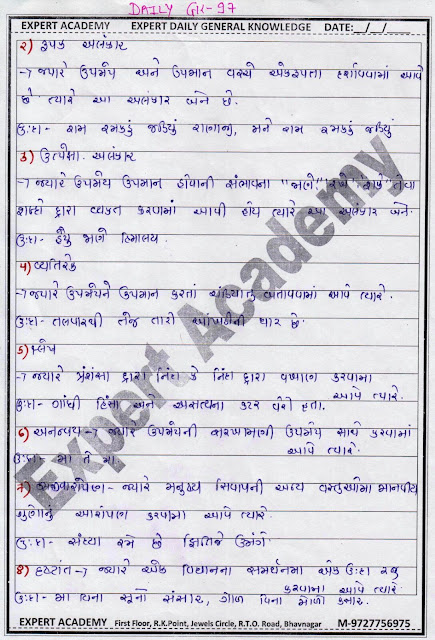 DAILY GK-97
EXPERT ACADEMY EXPERT DAILY GENERAL KNOWLEDGE DATE:__/__/__
૨) રૂપક અલંકાર
→ જ્યારે ઉપમેય અને ઉપમાન વચ્ચે એકરૂપતા દર્શાવવામાં આવે
છે ત્યારે આ અલંકાર બને છે.
ઉ:દા- રામ રમકડું જડિયું રાણાજી, મને રામ રમકડું જડિયું
૩) ઉત્પ્રેક્ષા અલંકાર
→ જ્યારે ઉપમેય ઉપમાન હોવાની સંભાવના "જાણે"
શબ્દો દ્વારા વ્યક્ત કરવામાં આવી હોય ત્યારે આ અલંકાર બને.
ઉ:દા- હૈયું જાણે હિમાલય.
૪) વ્યતિરેક
→ જ્યારે ઉપમેયને ઉપમાન કરતાં ચડિયાતું બતાવવામાં આવે ત્યારે.
ઉ:દા- તલવારથી તેજ તારી આંખોની ધાર છે.
૫) શ્લેષ
→ જ્યારે પ્રશંસા દ્વારા નિંદા કે નિંદા દ્વારા વખાણ કરવામા
આવે ત્યારે.
ઉ:દા- ગાંધી હિંસા અને અસત્યના કટર વેરી હતા.
૬) અનન્વય → જ્યારે ઉપમેયની સરખામણી ઉપમેય સાથે કરવામાં
આવે ત્યારે.
ઉ:દા- મા તે મા
૭) સજીવારોપણ - જ્યારે મનુષ્ય સિવાયની અન્ય વસ્તુઓમા માનવીય
ગુણોનું આરોપણ કરવામા આવે ત્યારે.
ઉ:દા- સંધ્યા રમે છે ક્ષિતિજે ઉમંગે
૮) દ્રષ્ટાંત → જ્યારે એક વિધાનના સમર્થનમા એક ઉ:દા રજુ
કરવામા આવે ત્યારે.
ઉ:દા- મા વિના સૂનો સંસાર, ગોળ વિના મોળો કંસાર.
EXPERT ACADEMY First Floor, R.K.Point, Jewels Circle, R.T.O. Road, Bhavnagar M-9727756975
Expert Academy